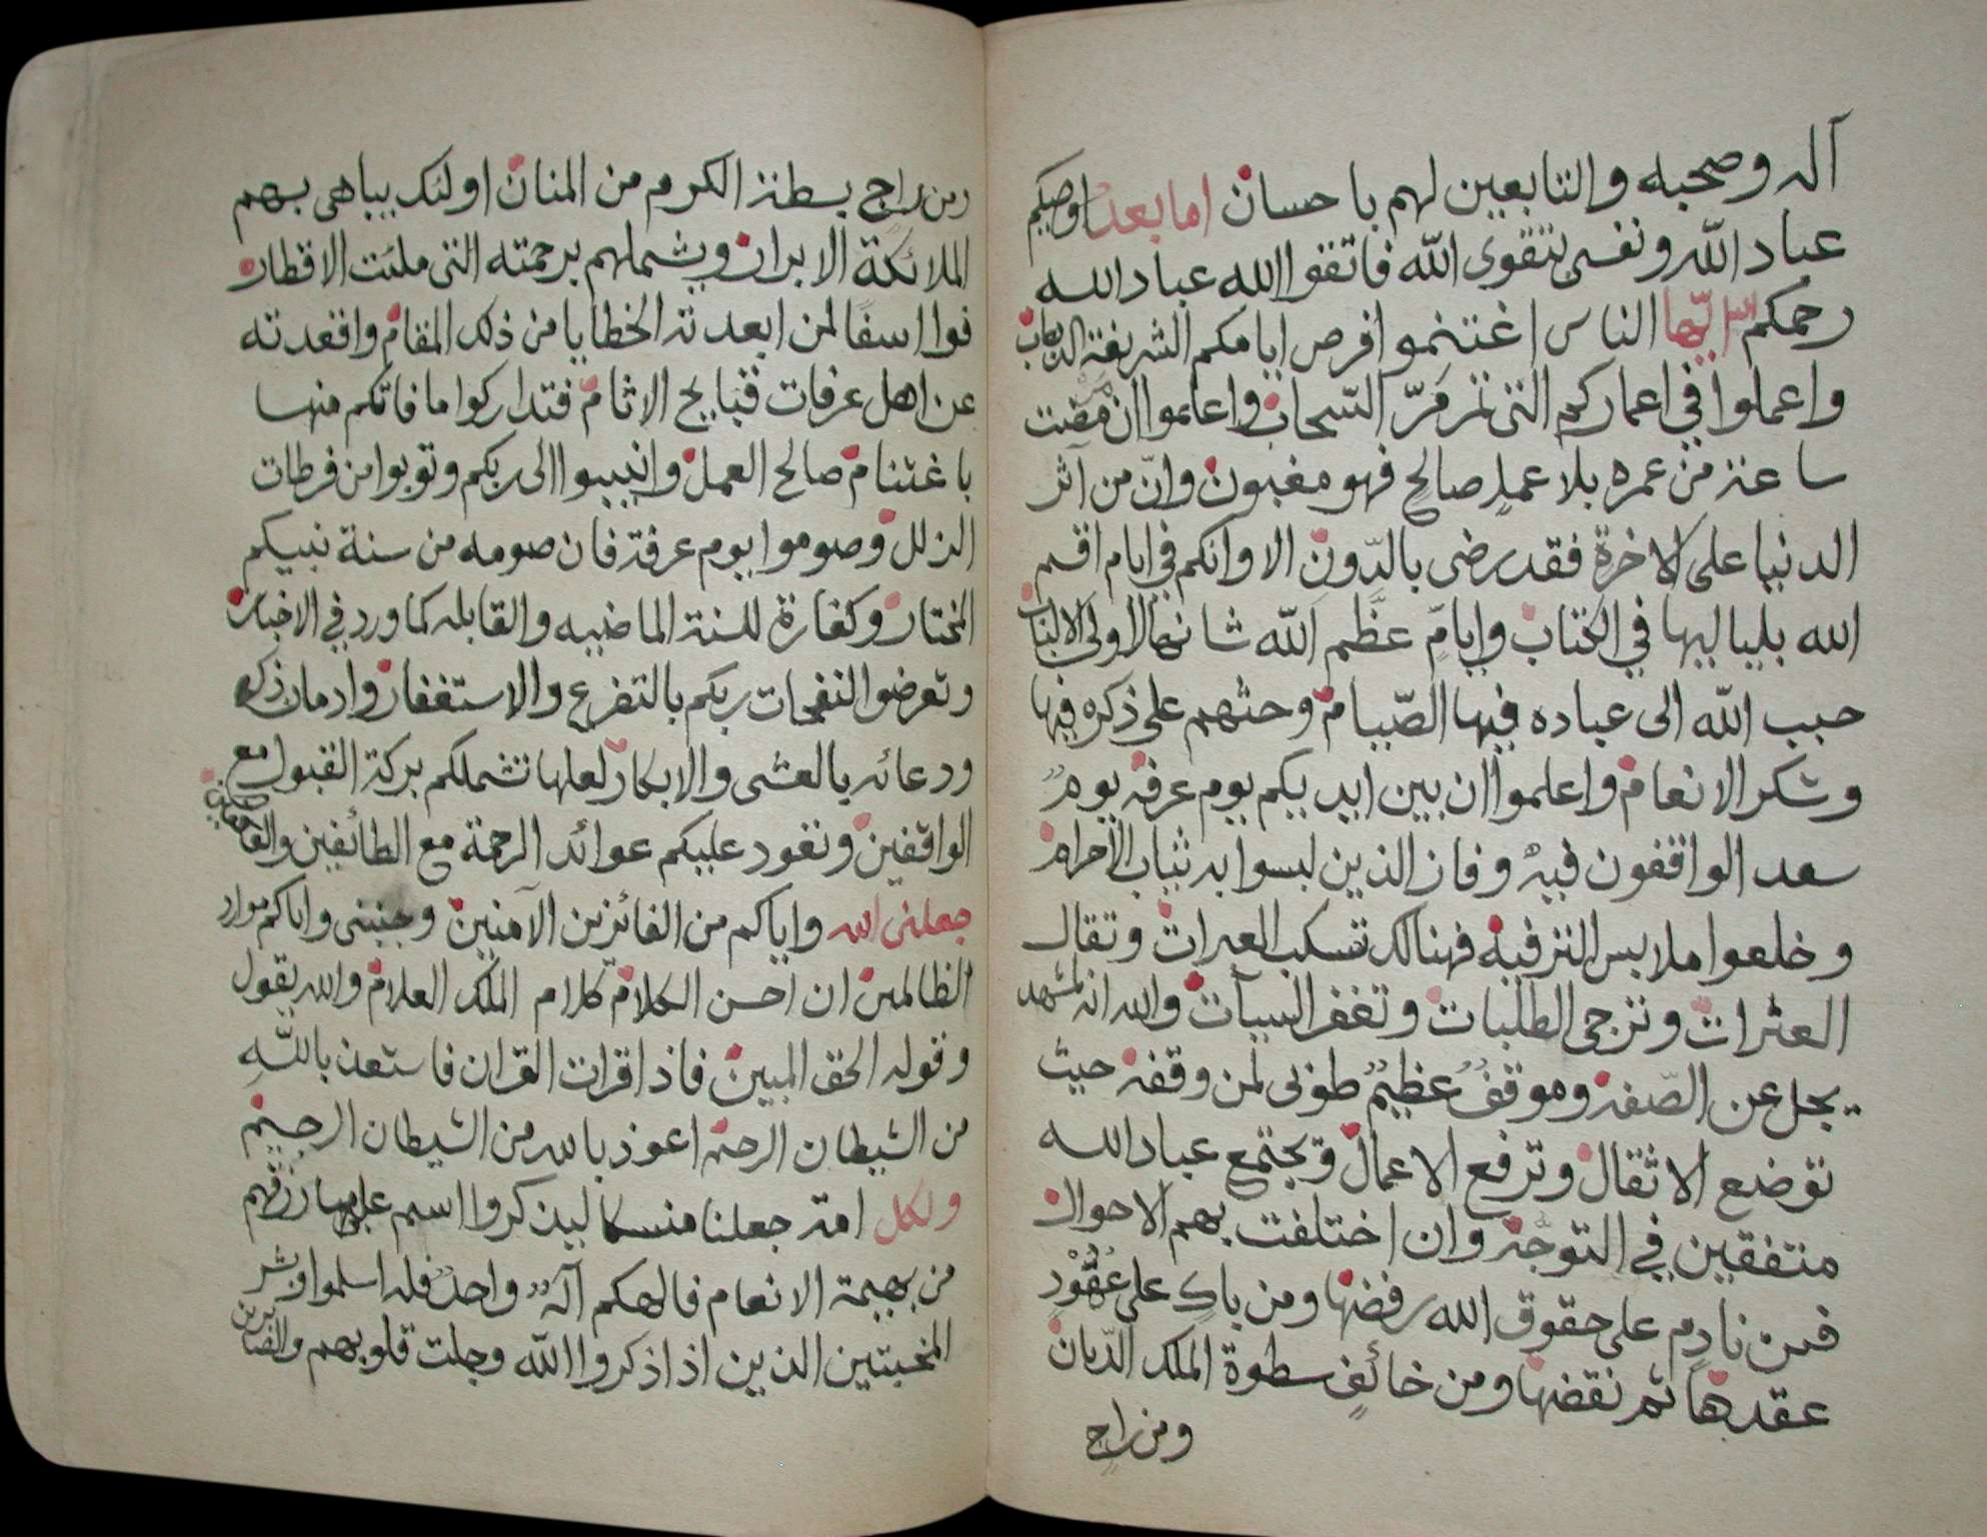 آله وصحبه والتابعين لهم باحسان اما بعد اوصيكم
عباد الله ونفسى بتقوى الله فاتقوا الله عباد الله
رحمكم الله ايها الناس اغتنموا فرص ايامكم الشريفة
واعملوا في اعماركم التى تمر مَرّ السّحاب واعلموا ان من مضت
ساعة من عمره بلا عملٍ صالحٍ فهو مغبون وانّ من آثر
الدنيا على الاخرة فقد رضى بالدّونِ الا وانكم في ايام اقسم
الله بلياليها في الكتاب وايامٍ عظَّم الله شانها لاولى الالباب
حبب الله الى عباده فيها الصّيام وحثهم على ذكره فيها
وشكر الانعام واعلموا ان بين ايديكم يوم عرفة يومٌ
سعد الواقفون فيه وفاز الذين لبسوا به ثياب الاحرام
وخلعوا ملابس الترفيه فهنالك تسكب العبرات وتقال
العثرات وترجى الطلبات وتغفر السيآت والله انه لمشهد
يجل عن الصّفة وموقفٌ عظيمٌ طوبى لمن وقفه حيث
توضع الاثقال وترفع الاعمال وتجتمع عباد الله
متفقين في التوجّه وان اختلفت بهم الاحوال
فمن نادمٍ على حقوق الله رفضها ومن باكٍ على عُقُودٍ
عقدها ثم نقضها ومن خائفٍ سطوة الملك الدّيان
ومن راجٍ
ومن راجٍ بسطة الكرم من المنان اولئك يباهى بهم
الملائكة الابرار ويشملهم برحمته التى ملئت الاقطار
فوا اسفًا لمن ابعدته الخطايا من ذلك المقام واقعدته
عن اهل عرفات قبايح الاثام فتداركوا ما فاتكم منها
باغتنام صالح العمل وانيبوا الى ربكم وتوبوا من فرطات
الزلل وصوموا يوم عرفة فان صومه من سنة نبيكم
المختار وكفارة للسنة الماضيه والقابله كما ورد في الاخبار
وتعرضوا النفحات ربكم بالتضرع والاستغفار وادمان ذكره
ودعائه بالعشى والابكار لعلها تشملكم بركة القبول مع
الواقفين وتعود عليكم عوائد الرحمة مع الطائفين والعاكفين
جعلنى الله واياكم من الفائزين الآمنين وجنبنى واياكم موارد
الظالمين ان احسن الكلام كلام الملك العلام والله يقول
وقوله الحق المبين فاذا قرات القران فاستعذ باللهِ
من الشيطان الرجيم اعوذ بالله من الشيطان الرجيم
ولكل امة جعلنا منسكا ليذكروا اسم الله على ما رزقهم
من بهيمة الانعام فالهكم آلهٌ واحدٌ فله اسلموا وبشر
المخبتين الذين اذا ذكروا الله وجلت قلوبهم والصابرين